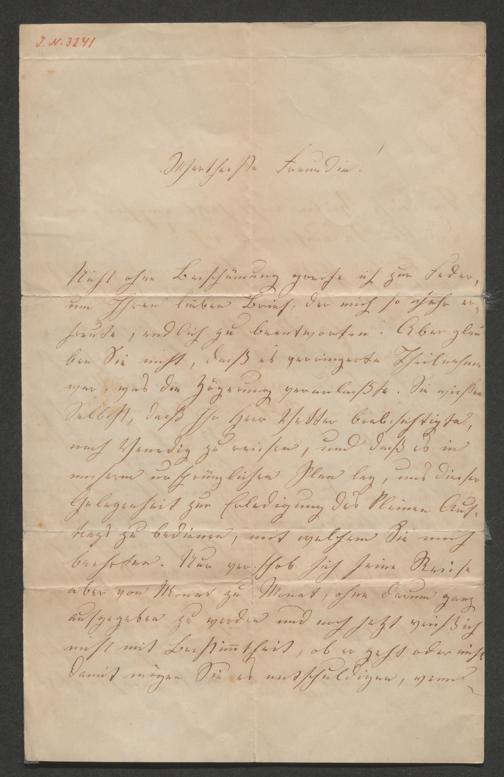 J. N. 3241
Wertheste Freundin!
Nicht ohne Beschämung greife ich zur Feder,
um Ihren lieben Brief, der mich so sehr er-
freute, endlich zu beantworten. Aber glau-
ben Sie nicht, daß es verringerte Theilnahme
war, was die Zögerung veranlaßte. Sie wissen
selbst, daß Ihr Herr Vetter beabsichtigte,
nach Venedig zu reisen, und daß es in
unserem ursprünglichen Plan lag, uns dieser
Gelegenheit zur Erledigung des kleinen Auf-
trags zu bedienen, mit welchem Sie mich
beehrten. Nun verschob sich seine Reise
aber von Monat zu Monat, ohne darum ganz
aufgegeben zu werden und noch jetzt weiß ich
nicht mit Bestimmtheit, ob er geht oder nicht
Damit mögen Sie es entschuldigen, wenn